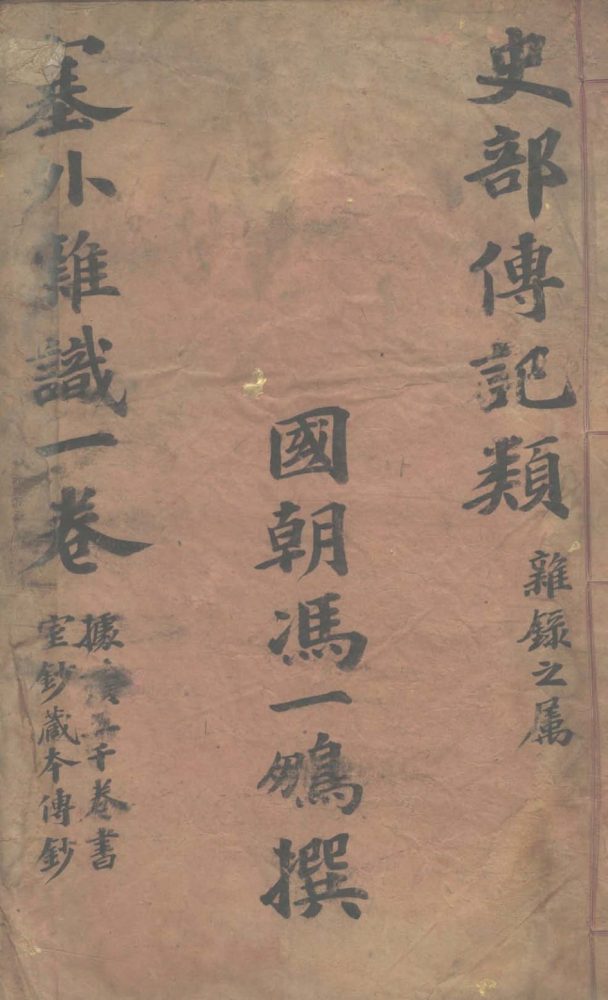 史部傳記類
雜錄之属
國朝馮一鵬撰
塞外雜識一卷
據五千卷書
室鈔藏本傳鈔